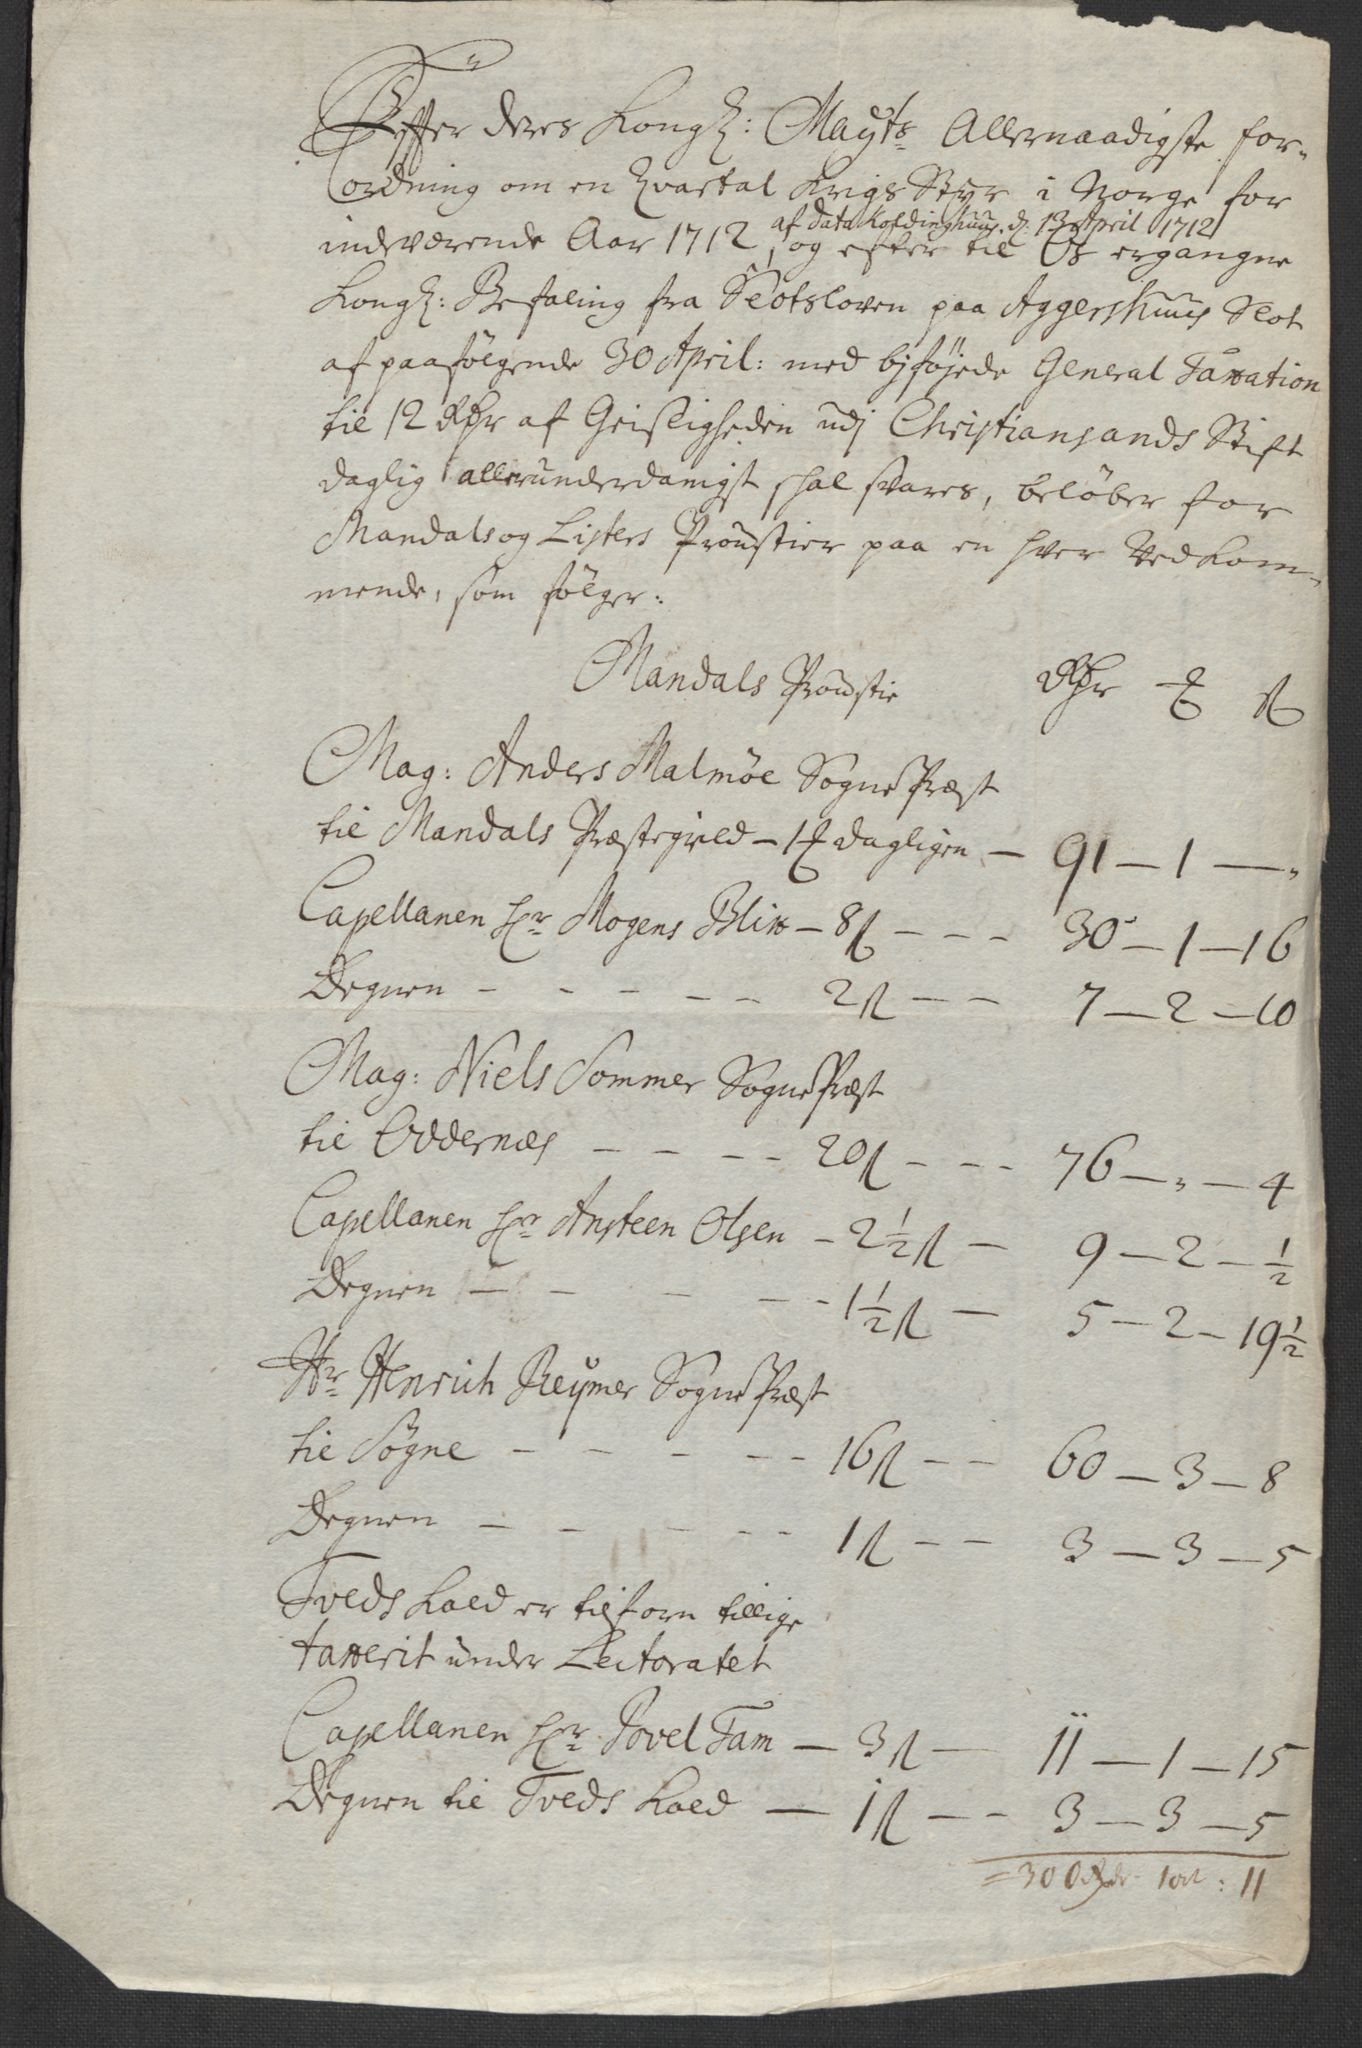 Effter deres Kongl: Mayts Allernaadigste for-
ordning om en Qvartal Krigs Styr i Norge for
af Data Koldinghuus. d: 13 April 1712
indeværende Aar 1712, og efter til Os ergangne
Kongl: Befaling fra Slotsloven paa Aggershuus Slot
af paafølgende 30 April: med byføjede General Taxation
til 12 Rdr af Geistligheden udj Christiansands Stift
daglig allerunderdanigst skal svares, beløber for
Mandals og Listers Proustier paa en hver Vedkom-
mende, som følger:
Mandals Proustie Rdr ℔ ß
Mag: Anders Malmöe SognePræst
til Mandals Præstegield – 1 ℔ dagligen – 91 – 1 – „
Capellanen Hr Mogens Blix – 8 ß – – – 30 – 1 – 16
Degnen – – – – – 2 ß – – 7 – 2 – 10
Mag: Niels Sommer SognePræst
til Oddernæs – – – – 20 ß – – – 76 – „ – 4
Capellanen Hr Ansteen Olsen – 2½ ß – 9 – 2 – ½
Degnen – – – – – 1½ ß – 5 – 2 – 19½
Hr Henrich Reymer SognePræst
til Søgne – – – – – 16 ß – – 60 – 3 – 8
Degnen – – – – – 1 ß – – 3 – 3 – 5
Tveds Kald er tilforn tillige
taxerit under Lectoratet
Capellanen Hr Povel Fam – 3 ß – 11 – 1 – 15
Degnen til Tveds Kald – 1 ß – – 3 – 3 – 5
= 300 Rdr 1 ort : 11